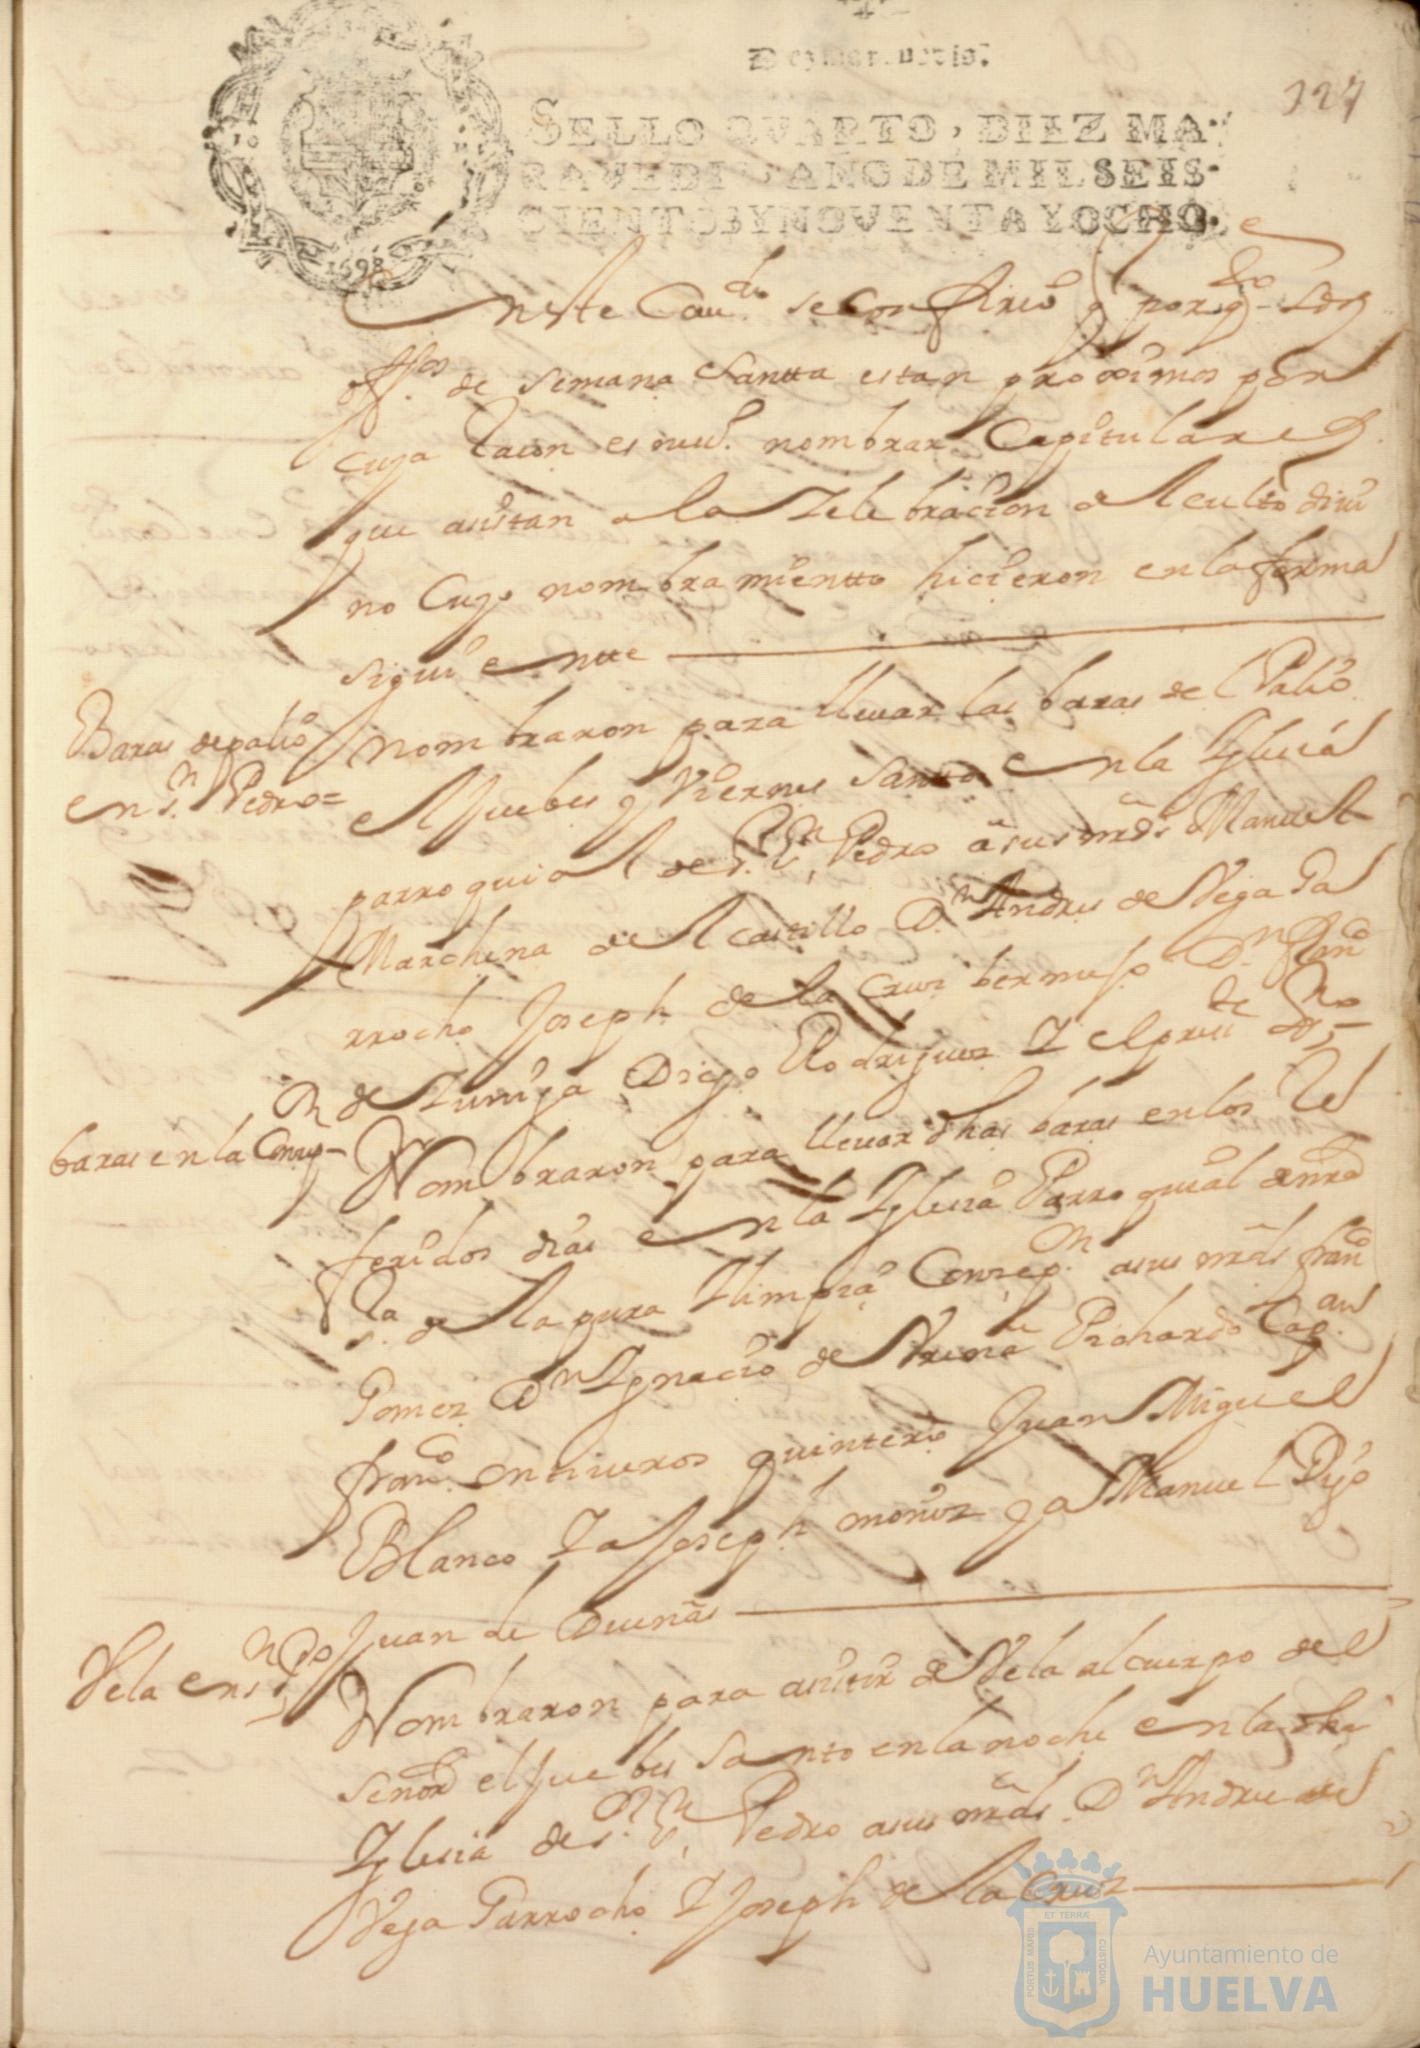 Diez maravedis.
127
SELLO QVARTO, DIEZ MA-
RAVEDIS, AÑO DE MIL SEIS-
CIENTOS Y NOVENTA Y OCHO.
1698
En este Caudo se Confirio y por qto los
offos de semana santta estan proximos por
cuya Raçon es nesso nombrar Capitulares
que asistan a la Zelebracion del culto diui
no Cuyo nombramientto hicieron en la forma
siguientte
Baras de palio
en sn Pedro=
Nombraron para lleuar las baras del Palio
el Juebes y Viernes Santto en la Iglecia
parroquial de sr Sn Pedro a sus mrds Manuel
Marchena del Castillo Dn Andres de Vega Ga
rrocho Joseph de la Cruz bermejo Dn Franco
de Zuniga Diego Rodriguez Y el preste
baras en la Consepn
Nombraron para lleuar dhas baras en los Re
feridos dias en la Iglesia Parroquial de nra
sra de la pura Y limpia Consepn a sus mrds franco
Gomez Dn Ygnacio de Prichardo Cap
franco ontiueros quintero Juan Miguel
Blanco Y a Joseph moniz y a Manuel
Juan de Duenas
Vela en sn Po
Nombraron para asistir de Vela al cuerpo del
señor el Juebes Santo en la noche en la dha
Iglesia de sr Sn Pedro a sus mrds Dn Andres de
Vega Garrocho Y Joseph de la Cruz
PORTUS MARIS ET TERRÆ CUSTODIA
Ayuntamiento de
HUELVA